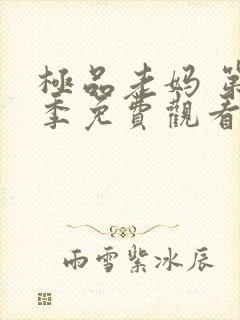 極品老妈 第
季免費觀看
雨雪紫冰辰